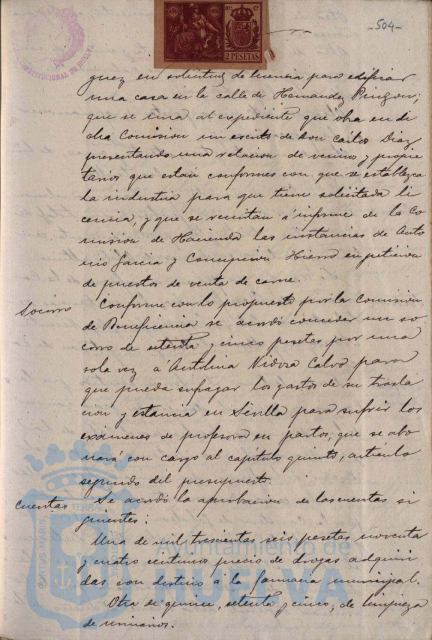 504
2 PESETAS
guez en solicitud de licencia para edificar
una casa en la calle de Hernandez Pinzon;
que se una al expediente que obra en di
cha Comision un escrito de Don Carlos Diaz
presentando una relacion de vecinos y propie
tarios que estan conformes con que se establezca
la industria para que tiene solicitada li
cencia, y que se remitan a informe de la Co
mision de Hacienda las instancias de Anto
nio Garcia y Concepcion Hierro en peticion
de puestos de venta de carne.
Socorro
Conforme con lo propuesto por la Comision
de Beneficencia se acordó conceder un so
corro de setenta y cinco pesetas por una
sola vez á Antolina Calvo para
que pueda sufragar los gastos de su trasla
cion y estancia en Sevilla para sufrir los
exámenes de profesora en partos, que se abo
nará con cargo al capitulo quinto, articulo
segundo del presupuesto.
Cuentas
Se acordó la aprobacion de las cuentas si
guientes:
Una de mil trescientas seis pesetas noventa
y cuatro centimos precio de drogas adquiri
das con destino a la farmacia municipal.
Otra de quince, setenta y cinco, de limpieza
de
Ayuntamiento de
HUELVA